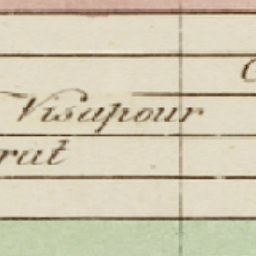 Visapour
rat